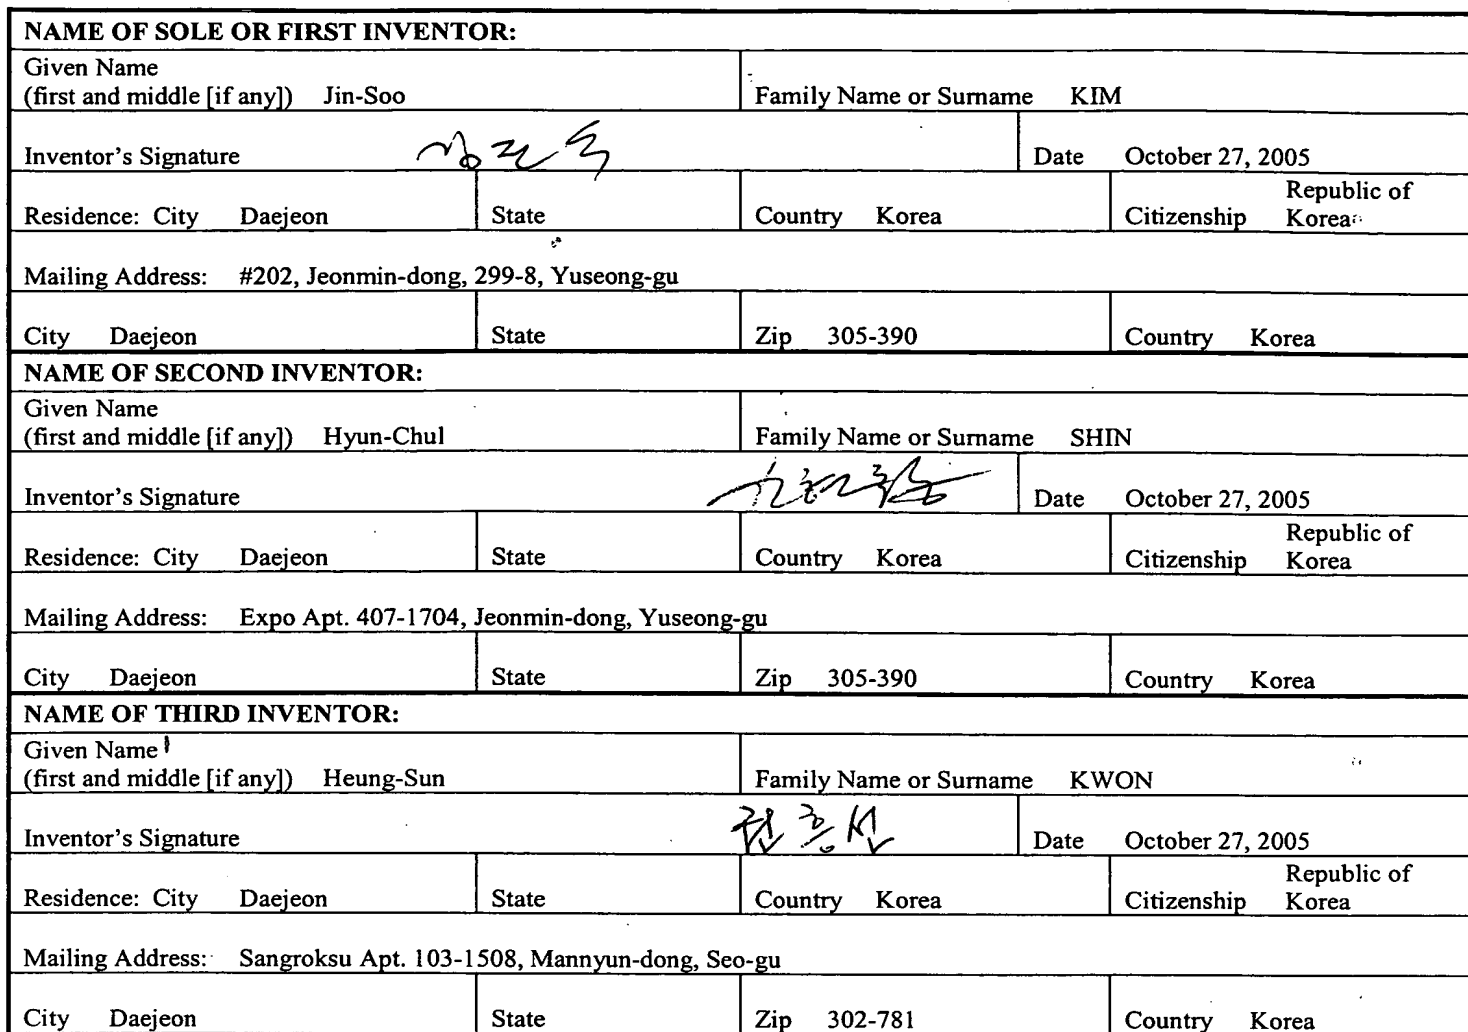 NAME OF SOLE OR FIRST INVENTOR:
Given Name
(first and middle [if any]) Jin-Soo Family Name or Surname KIM
Inventor's Signature Date October 27, 2005
Residence: City Daejeon State Country Korea Citizenship Republic of Korea
Mailing Address: #202, Jeonmin-dong, 299-8, Yuseong-gu
City Daejeon State Zip 305-390 Country Korea
NAME OF SECOND INVENTOR:
Given Name
(first and middle [if any]) Hyun-Chul Family Name or Surname SHIN
Inventor's Signature Date October 27, 2005
Residence: City Daejeon State Country Korea Citizenship Republic of Korea
Mailing Address: Expo Apt. 407-1704, Jeonmin-dong, Yuseong-gu
City Daejeon State Zip 305-390 Country Korea
NAME OF THIRD INVENTOR:
Given Name
(first and middle [if any]) Heung-Sun Family Name or Surname KWON
Inventor's Signature 권흥선 Date October 27, 2005
Residence: City Daejeon State Country Korea Citizenship Republic of Korea
Mailing Address: Sangroksu Apt. 103-1508, Mannyun-dong, Seo-gu
City Daejeon State Zip 302-781 Country Korea